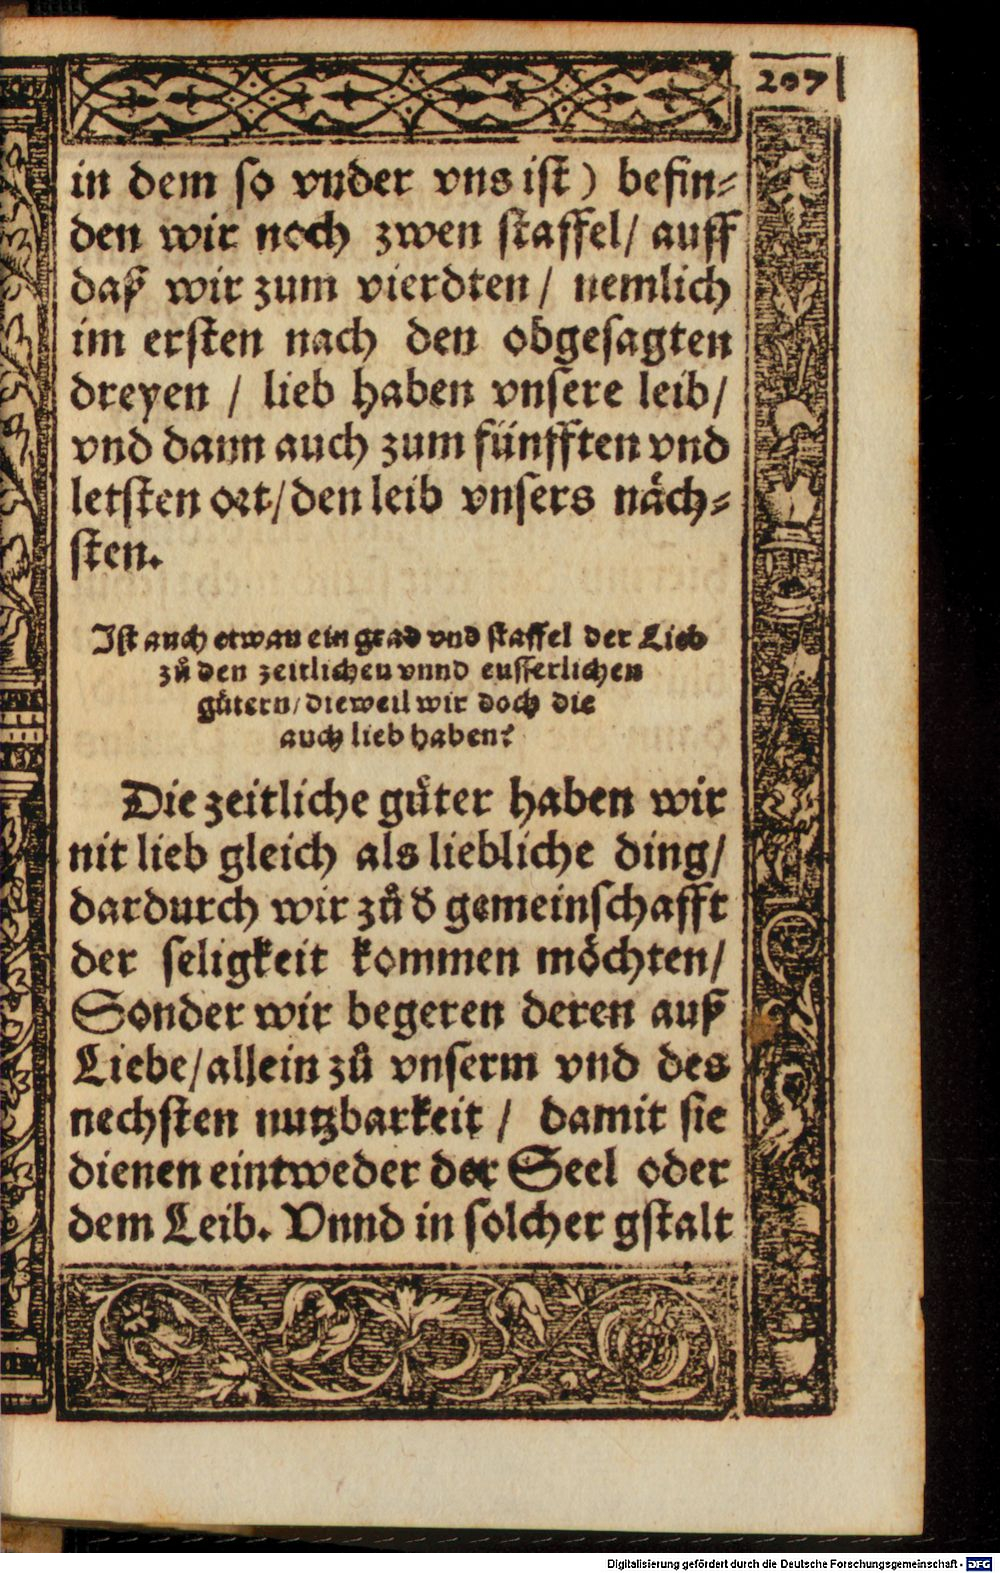 207
in dem so vnder vns ist) befin⸗
den wir noch zwen staffel/ auff
daß wir zum vierdten/ nemlich
im ersten nach den obgesagten
dreyen / lieb haben vnsere leib/
vnd dann auch zum fünfften vnd
letsten ort/den leib vnsers näch⸗
sten.
Ist auch etwan ein grad vnd staffel der Lieb
zů den zeitlichen vnnd eusserlichen
gütern/dieweil wir doch die
auch lieb haben?
Die zeitliche gůter haben wir
nit lieb gleich als liebliche ding/
dardurch wir zů d̕ gemeinschafft
der seligkeit kommen möchten/
Sonder wir begeren deren auß
Liebe/allein zů vnserm vnd des
nechsten nutzbarkeit / damit sie
dienen eintweder der Seel oder
dem Leib. Vnnd in solcher gstalt
Digitalisierung gefördert durch die Deutsche Forschungsgemeinschaft - DFG